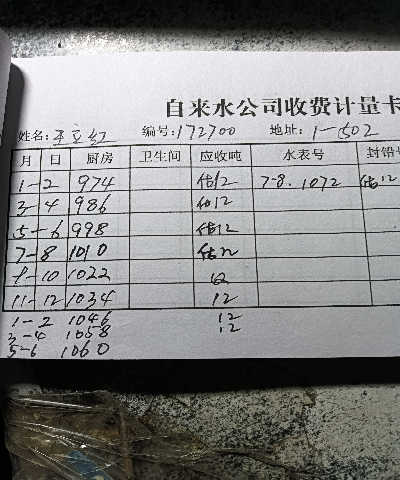 自来水公司收费计量卡
姓名: 王立红 编号:172700 地址: 1-1502
月 日 厨房 卫生间 应收吨 水表号 封铅号
1-2 974 估12 7-8. 1072 估12
3-4 986 估12
5-6 998 估12
7-8 1010 估12
9-10 1022 12
11-12 1034 12
1-2 1046 12
3-4 1058 12
5-6 1060